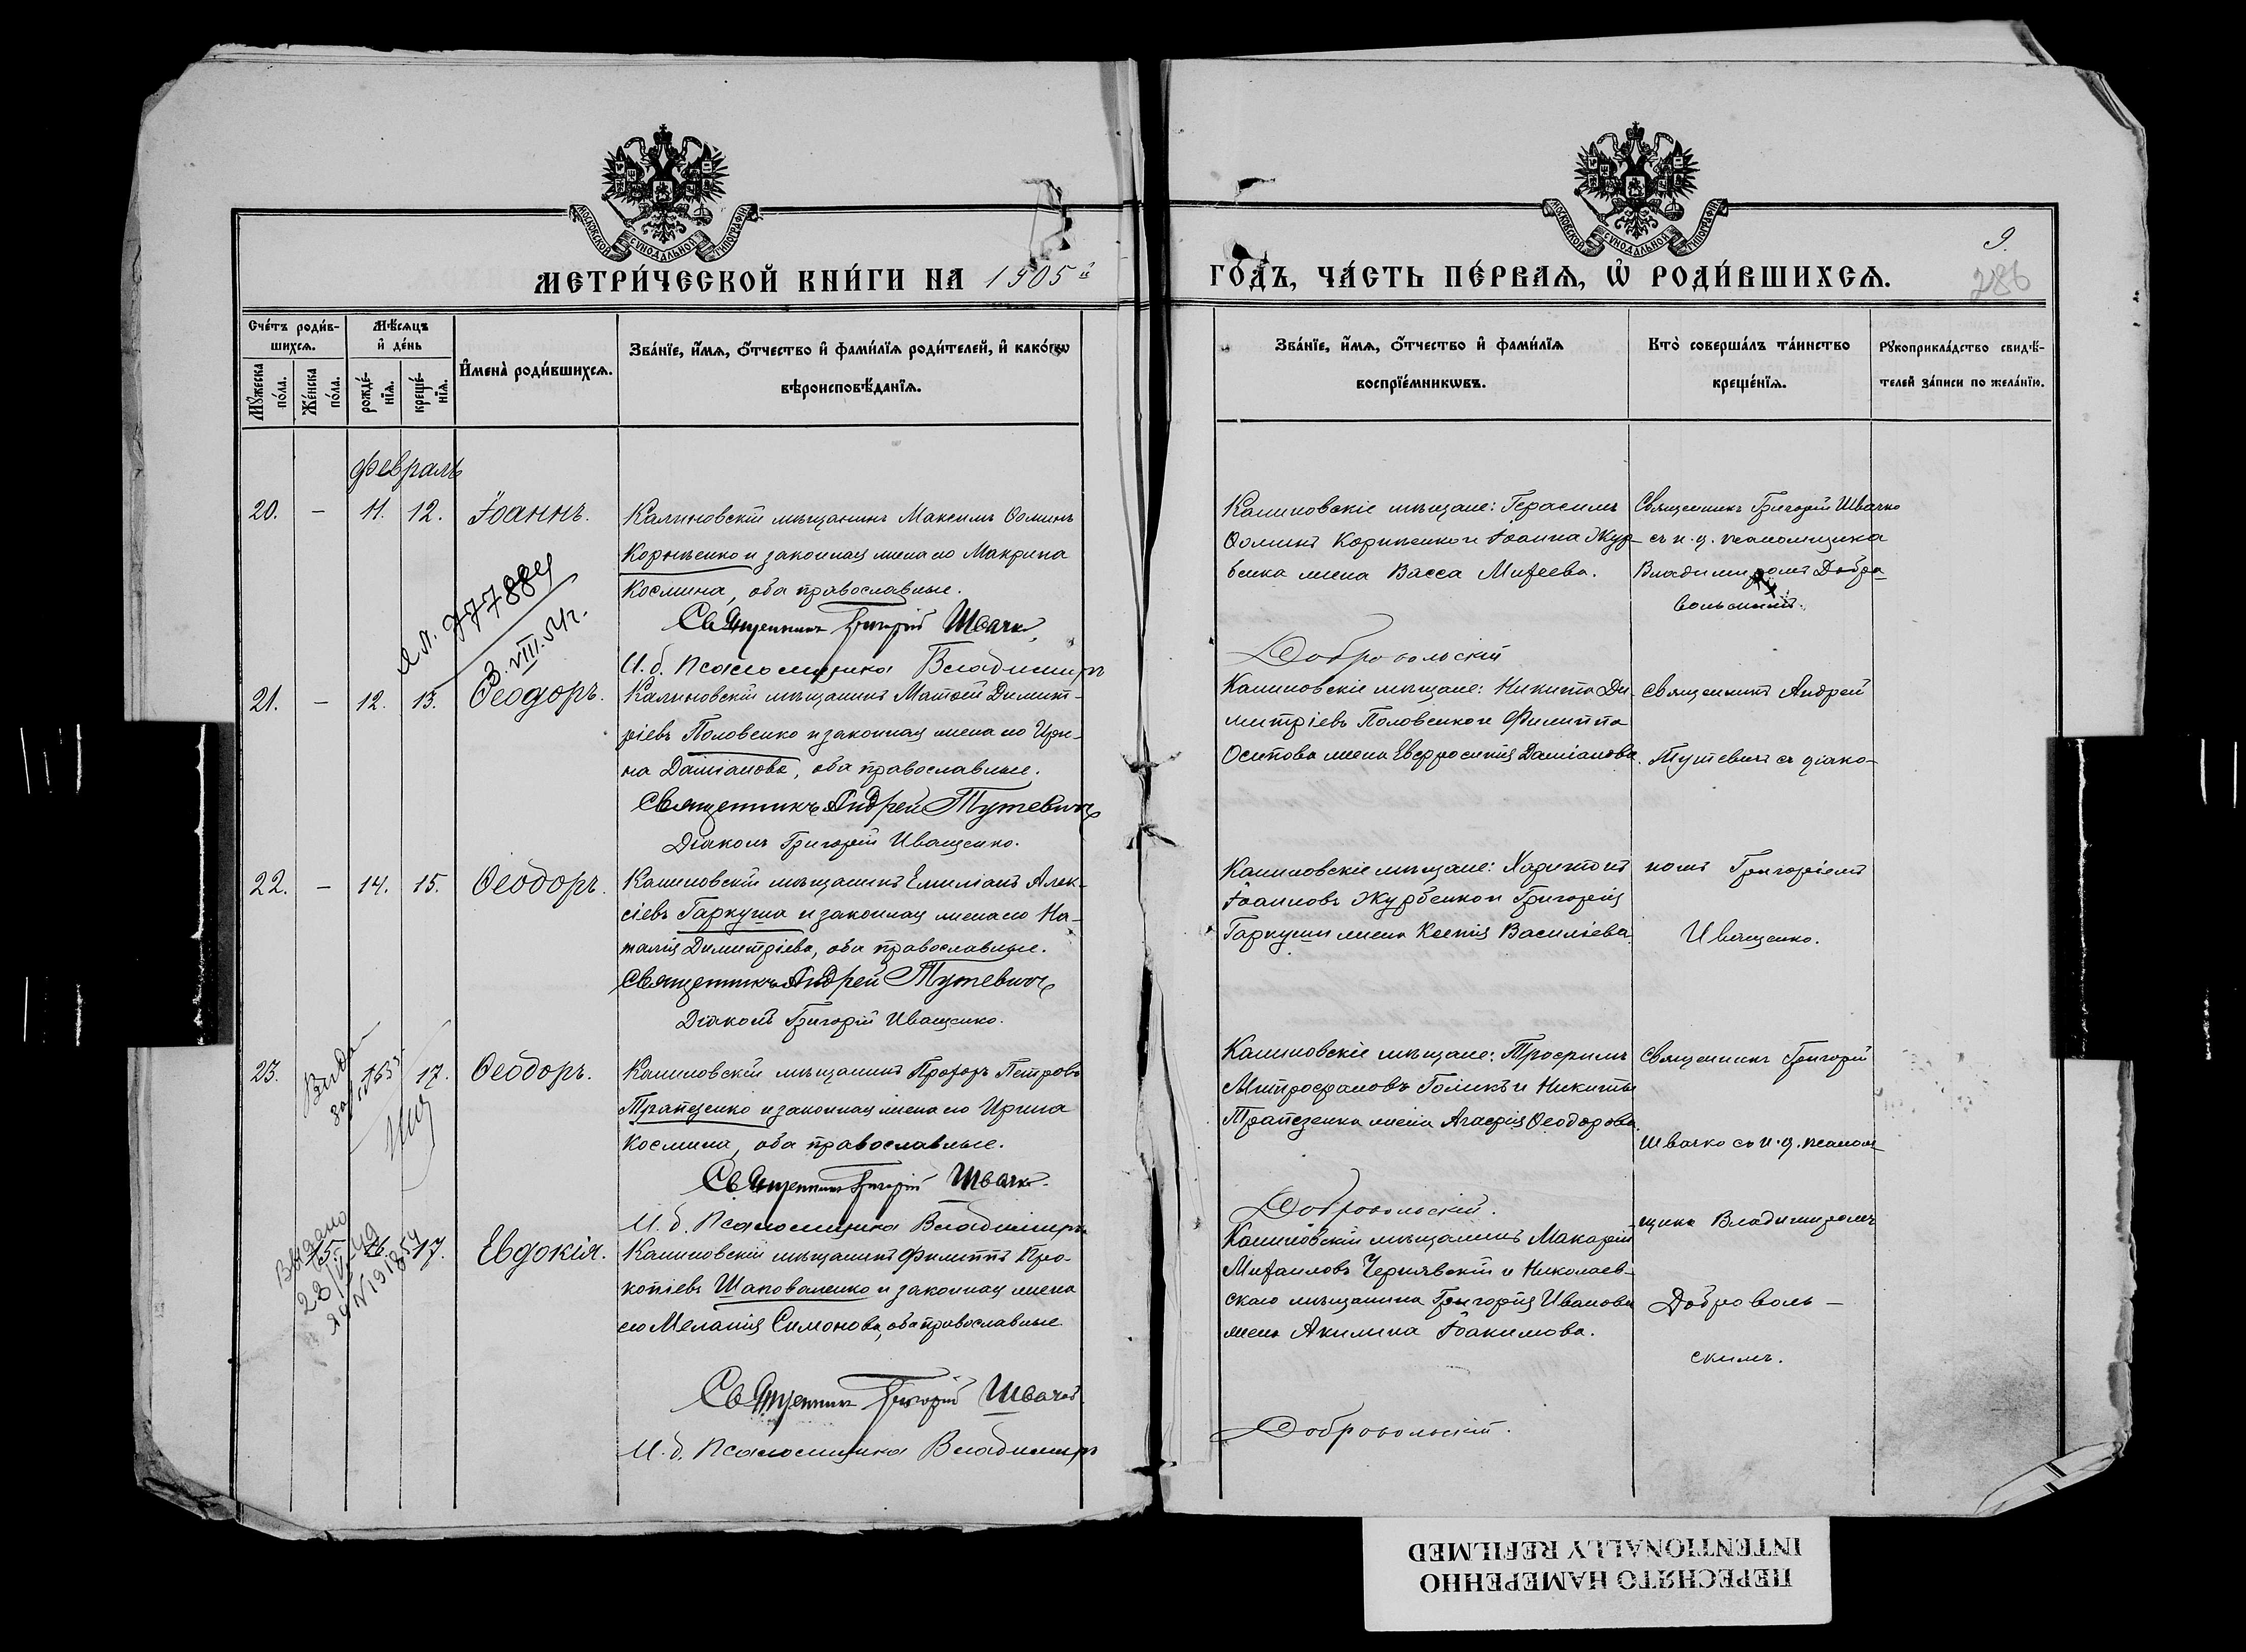 МОСКОВСКОЙ СѴНОДАЛЬНОЙ ТИПОГРАФІИ
МЕТРИ́ЧЕСКОЙ КНИ́ГИ НА 1905 й
Сче́тъ роди́в-
шихсѧ.
Мѣ́сѧцъ
и҆ де́нь
И҆мена̀ роди́вшихсѧ.
Зва́нїе, и҆́мѧ, ѻ҆́тчество и҆ фами́лїѧ роди́телей, и҆ како́гѡ
вѣроисповѣ́данїѧ.
Мꙋ́жеска
по́ла.
Же́нска
по́ла.
рожде́-
нїѧ.
креще́-
нїѧ.
Февраль
20. — 11. 12. Іоаннъ.
Калиновскій мѣщанинъ Максимъ Ѳоминъ
Корниенко и законная жена его Макрина
Космина, оба православные.
Священникъ Григорій Швачко
И. д. Псаломщика Владиміръ
77884
3.VIII.51г.
21. — 12. 13. Ѳеодоръ.
Калиновскій мѣщанинъ Матѳей Димит-
ріевъ Половенко и законная жена его Ири-
на Даміанова, оба православные.
Священникъ Андрей Тутевичъ
Діаконъ Григорій Иващенко.
22. — 14. 15. Ѳеодоръ.
Калиновскій мѣщанинъ Емиліанъ Алек-
сіевъ Гаркуша и законная жена его На-
талія Димитріева, оба православные.
Священникъ Андрей Тутевичъ
Діаконъ Григорій Иващенко.
23. 17. Ѳеодоръ.
Калиновскій мѣщанинъ Прохоръ Петровъ
Трапезенко и законная жена его Ирина
Космина, оба православные.
Священникъ Григорій Швачко
И. д. Псаломщика Владиміръ
Выдано
17. Евдокія.
Калиновскій мѣщанинъ Филиппъ Про-
копіевъ Шаповаленко и законная жена
его Меланія Симонова, оба православные
Священникъ Григорій Швачко
И. д. Псаломщика Владиміръ
МОСКОВСКОЙ СѴНОДАЛЬНОЙ ТИПОГРАФІИ
9.
286
ГО́ДЪ, ЧА́СТЬ ПЕ́РВАѦ, Ѡ҆ РОДИ́ВШИХСѦ.
Зва́нїе, и҆́мѧ, ѻ҆́тчество и҆ фами́лїѧ
воспрїе́мникѡвъ.
Кто̀ соверша́лъ та́инство
креще́нїѧ.
Рꙋкоприкла́дство свидѣ́-
телей за́писи по жела́нїю.
Калиновскіе мѣщане: Герасимъ
Ѳоминъ Корниенко и Іоанна Жур-
бенка жена Васса Михеева.
Добровольскій
Священникъ Григорій Швачко
съ и. д. псаломщика
Владиміромъ Добро-
вольскимъ.
Калиновскіе мѣщане: Никита Ди-
митріевъ Половенко и Филиппа
Осипова жена Евфросинія Даміанова.
Священникъ Андрей
Тутевичъ съ діако-
Калиновскіе мѣщане: Харитонъ
Іоанновъ Журбенко и Григорія
Гаркуши жена Ксенія Василіева.
номъ Григоріемъ
Иващенко.
Калиновскіе мѣщане: Трофимъ
Митрофановъ Голикъ и Никиты
Трапезенка жена Агафія Ѳеодорова.
Добровольскій.
Священникъ Григорій
Швачко съ и. д. псалом-
щика Владиміромъ
Калиновскій мѣщанинъ Макарій
Михаиловъ Чернявскій и Николаев-
скаго мѣщанина Григорія Иванова
жена Акилина Іоакимова.
Доброволь-
скимъ.
Добровольскій.
ПЕРЕСНЯТО НАМЕРЕННО
INTENTIONALLY REFILMED